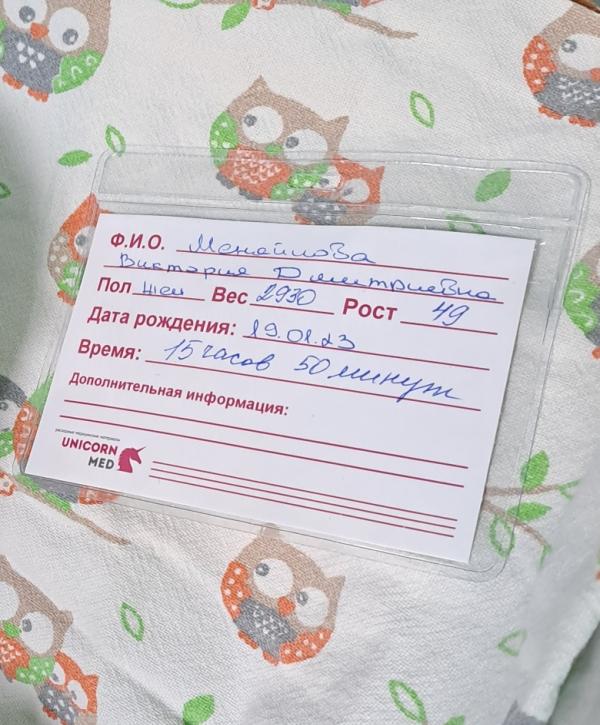 Ф.И.О. Менайлова
Виктория Дмитриевна
Пол жен Вес 2930 Рост 49
Дата рождения: 19.01.23
Время: 15 часов 50 минут
Дополнительная информация:
расходные медицинские материалы
UNICORN
MED